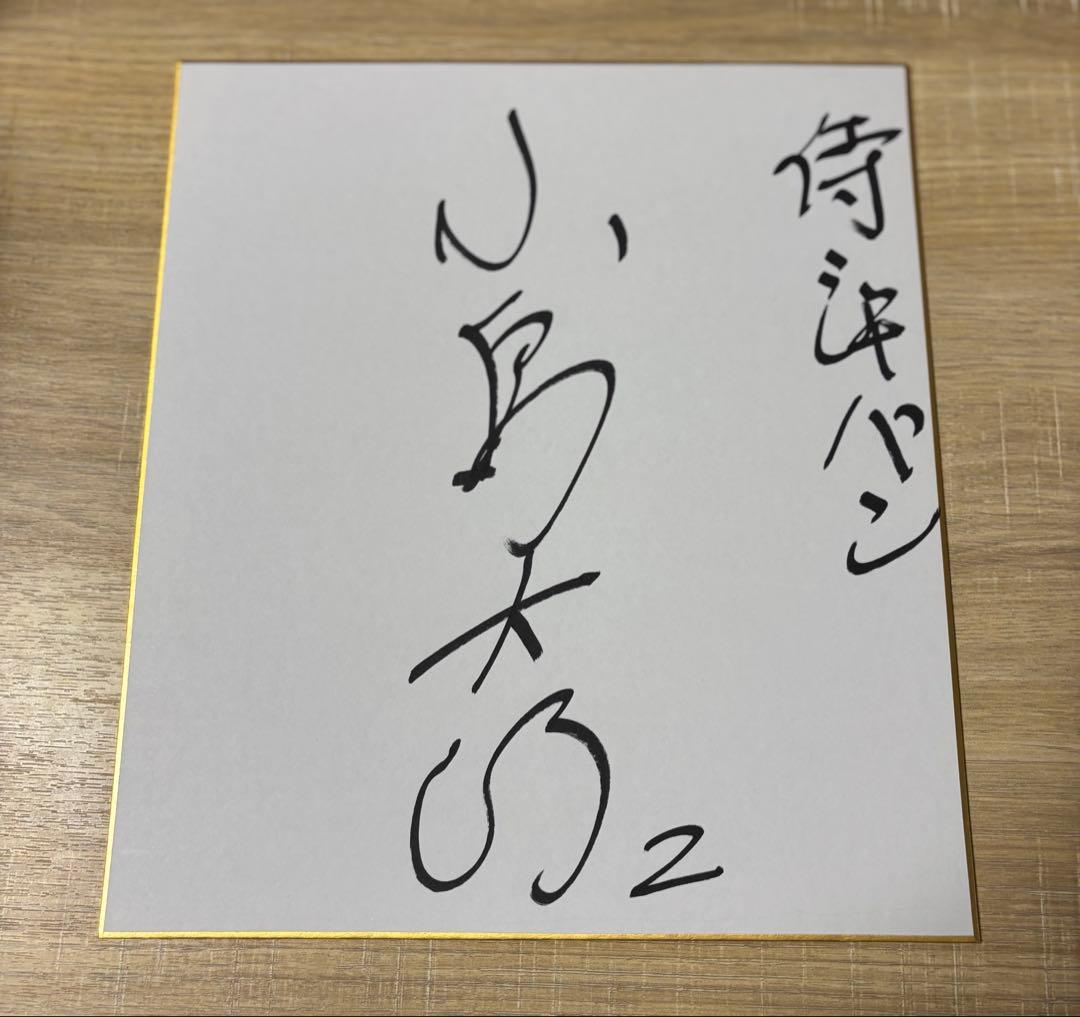 侍ジャパン
小島大河
2